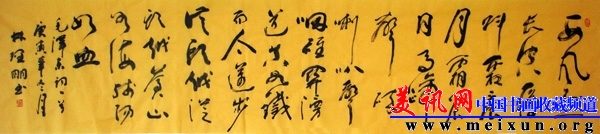 西风烈
长空雁
叫霜晨
月霜晨
月马蹄
声碎
喇叭声
咽雄关漫
道真如铁
而今迈步
从头越从
头越苍山
如海残阳
如血
毛泽东词一首
庚寅年
美讯网 中国书画收藏频道
www.meixun.org